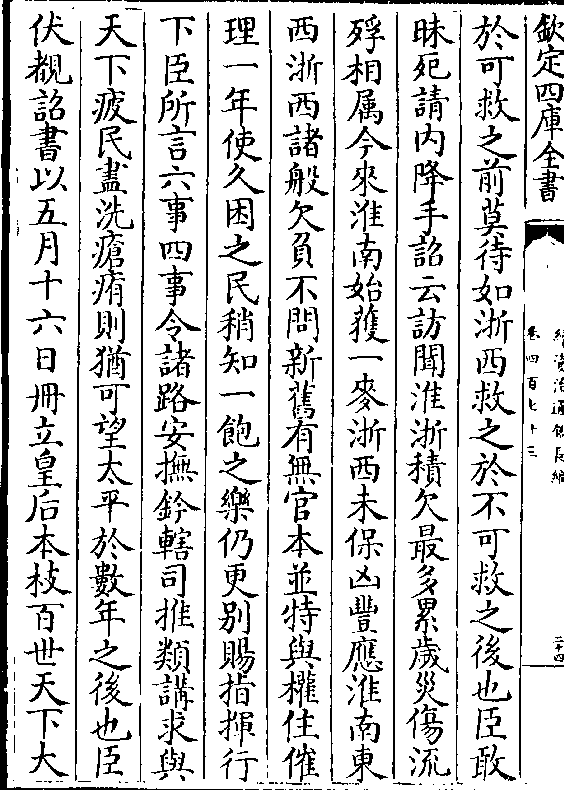 欽定四庫全書
續資治通鑑長編
卷四百七十三
二十四
於可救之前莫待如浙西救之於不可救之後也臣敢
昧死請内降手詔云訪聞淮浙積欠最多累歲災傷流
殍相属今來淮南始獲一麥浙西未保凶豐應淮南東
西浙西諸般欠負不問新舊有無官本並特與權住催
理一年使久困之民稍知一飽之樂仍更别賜指揮行
下臣所言六事四事令諸路安撫鈐轄司推類講求與
天下疲民盡洗瘡痏則猶可望太平於數年之後也臣
伏覩詔書以五月十六日冊立皇后本枝百世天下大